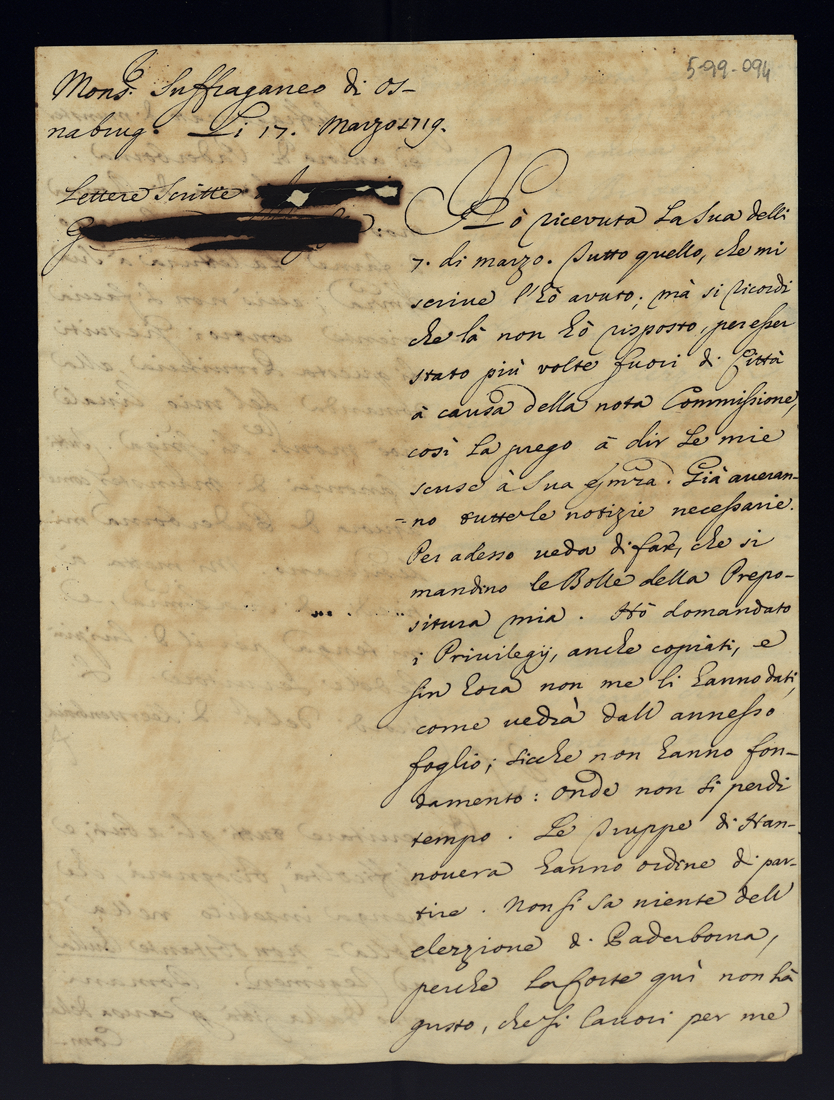 5-99-094
Mons.r Suffraganeo di Os-
nabrug. Li 17. Marzo 1719.
Lettere Scritte
Hò ricevuta La Sua delli
7. di marzo. Tutto quello, che mi
scrive l'hò avuto; mà si ricordi
che là non hò risposto, per esser
stato più volte fuori di Città
à causa della nota Commissione,
così La prego à dir Le mie
scuse à Sua Em̃za. Già averan-
=no tutte le notizie necessarie.
Per adesso veda di far, che si
mandino le Bolle della Prepo-
situra mia. Hò domandato
i Privilegij, anche copiati, e
sin hora non me li hanno dati,
come vedrà dall' annesso
foglio; sicche non hanno fon-
damento: onde non si perdi
tempo. Le Truppe di Han-
novera hanno ordine di par-
tire. Non si sa niente dell'
elezzione di Paderborna,
perche La Corte quì non hà
gusto, che si lavori per me